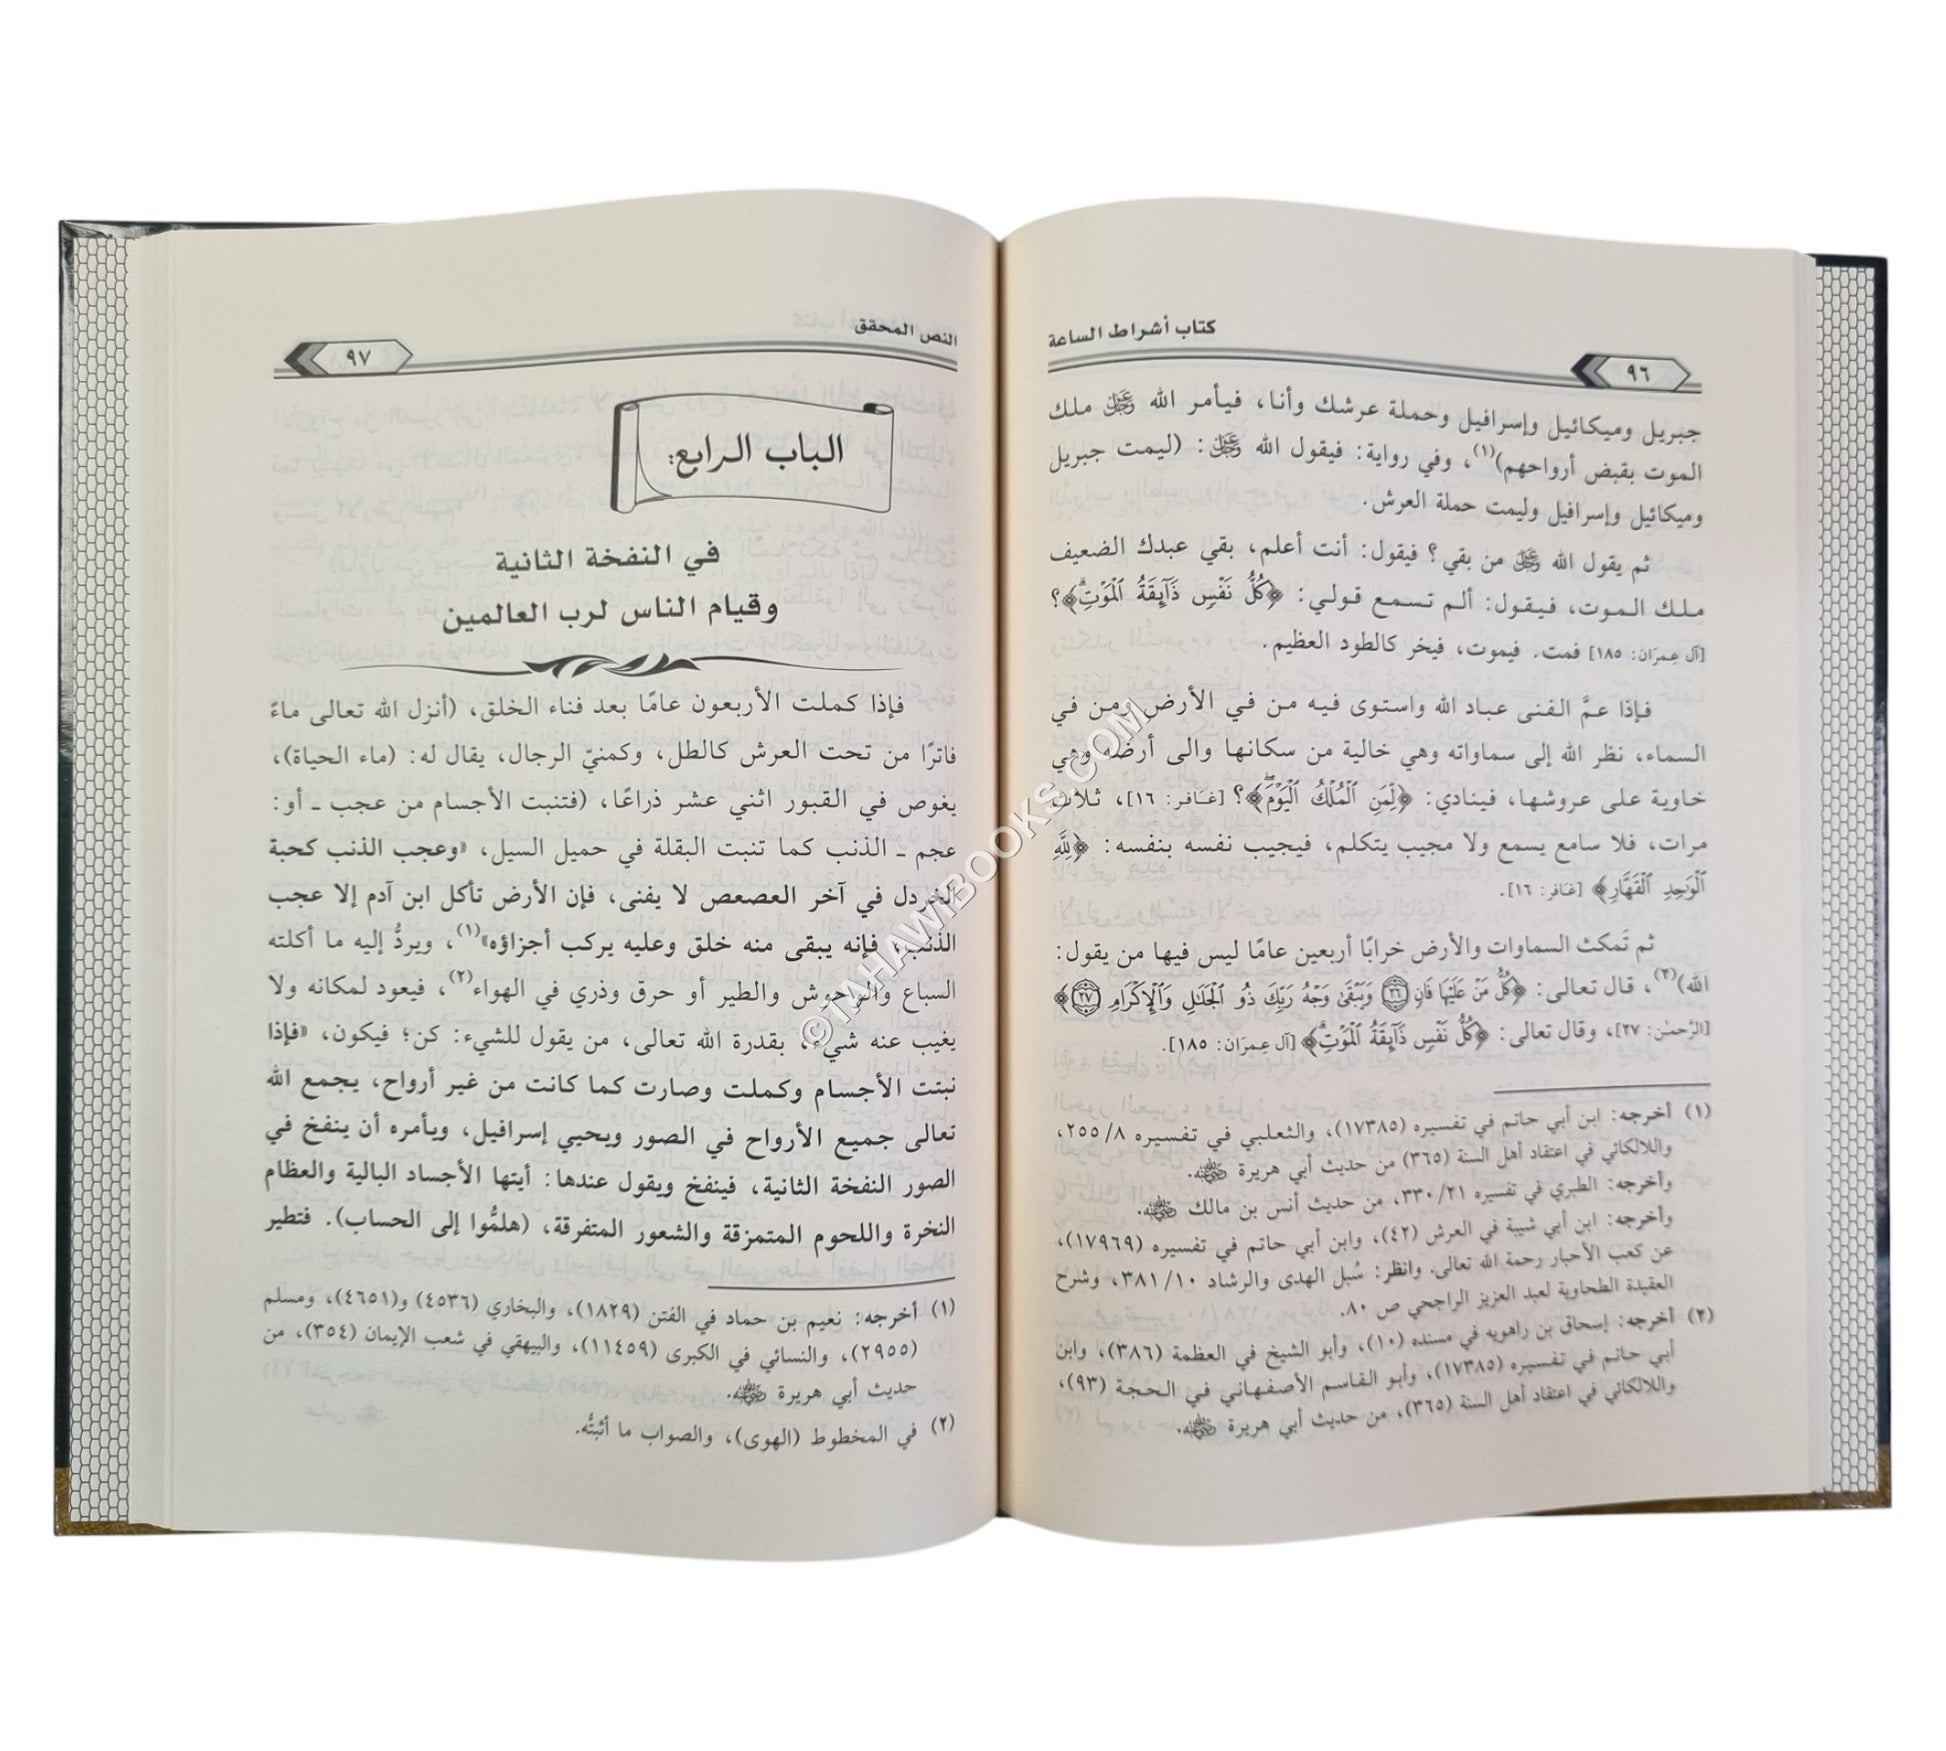 كتاب أشراط الساعة
٩٦
جبريل وميكائيل وإسرافيل وحملة عرشك وأنا، فيأمر الله عَزَّوَجَلَّ ملك
الموت بقبض أرواحهم)(١)، وفي رواية: فيقول الله عَزَّوَجَلَّ: (ليمت جبريل
وميكائيل وإسرافيل وليمت حملة العرش.
ثم يقول الله عَزَّوَجَلَّ من بقي؟ فيقول: أنت أعلم، بقي عبدك الضعيف
ملك الموت، فيقول: ألم تسمع قولي: ﴿كُلُّ نَفْسٍ ذَآئِقَةُ ٱلْمَوْتِۗ﴾؟
[آل عِمرَان: ١٨٥] فمت. فيموت، فيخر كالطود العظيم.
فإذا عمَّ الفنى عباد الله واستوى فيه من في الأرض ومن في
السماء، نظر الله إلى سماواته وهي خالية من سكانها والى أرضه وهي
خاوية على عروشها، فينادي: ﴿لِّمَنِ ٱلْمُلْكُ ٱلْيَوْمَۖ﴾؟ [غَافر: ١٦]، ثلاث
مرات، فلا سامع يسمع ولا مجيب يتكلم، فيجيب نفسه بنفسه: ﴿لِلَّهِ
ٱلْوَٰحِدِ ٱلْقَهَّارِ﴾ [غَافر: ١٦].
ثم تَمكث السماوات والأرض خرابًا أربعين عامًا ليس فيها من يقول:
الله)(٢)، قال تعالى: ﴿كُلُّ مَنْ عَلَيْهَا فَانٍ ٢٦ وَيَبْقَىٰ وَجْهُ رَبِّكَ ذُو ٱلْجَلَٰلِ وَٱلْإِكْرَامِ ٢٧﴾
[الرَّحمٰن: ٢٧]، وقال تعالى: ﴿كُلُّ نَفْسٍ ذَآئِقَةُ ٱلْمَوْتِۗ﴾ [آل عِمرَان: ١٨٥].
(١) أخرجه: ابن أبي حاتم في تفسيره (١٧٣٨٥)، والثعلبي في تفسيره ٢٥٥/٨،
واللالكائي في اعتقاد أهل السنة (٣٦٥) من حديث أبي هريرة رضي الله عنه.
وأخرجه: الطبري في تفسيره ٣٣٠/٢١، من حديث أنس بن مالك رضي الله عنه.
وأخرجه: ابن أبي شيبة في العرش (٤٢)، وابن أبي حاتم في تفسيره (١٧٩٦٩)،
عن كعب الأحبار رحمة الله تعالى. وانظر: سُبل الهدى والرشاد ٣٨١/١٠، وشرح
العقيدة الطحاوية لعبد العزيز الراجحي ص ٨٠.
(٢) أخرجه: إسحاق بن راهويه في مسنده (١٠)، وأبو الشيخ في العظمة (٣٨٦)، وابن
أبي حاتم في تفسيره (١٧٣٨٥)، وأبو القاسم الأصفهاني في الحجة (٩٣)،
واللالكائي في اعتقاد أهل السنة (٣٦٥)، من حديث أبي هريرة رضي الله عنه.
النص المحقق
٩٧
الباب الرابع:
في النفخة الثانية
وقيام الناس لرب العالمين
فإذا كملت الأربعون عامًا بعد فناء الخلق، (أنزل الله تعالى ماءً
فاترًا من تحت العرش كالطل، وكمنيّ الرجال، يقال له: (ماء الحياة)،
يغوص في القبور اثني عشر ذراعًا، (فتنبت الأجسام من عجب ـ أو:
عجم ـ الذنب كما تنبت البقلة في حميل السيل، «وعجب الذنب كحبة
الخردل في آخر العصعص لا يفنى، فإن الأرض تأكل ابن آدم إلا عجب
الذنب، فإنه يبقى منه خلق وعليه يركب أجزاؤه»(١)، ويردُّ إليه ما أكلته
السباع والوحوش والطير أو حرق وذري في الهواء(٢)، فيعود لمكانه ولا
يغيب عنه شيء، بقدرة الله تعالى، من يقول للشيء: كن؛ فيكون، «فإذا
نبتت الأجسام وكملت وصارت كما كانت من غير أرواح، يجمع الله
تعالى جميع الأرواح في الصور ويحيي إسرافيل، ويأمره أن ينفخ في
الصور النفخة الثانية، فينفخ ويقول عندها: أيتها الأجساد البالية والعظام
النخرة واللحوم المتمزقة والشعور المتفرقة، (هلمُّوا إلى الحساب). فتطير
(١) أخرجه: نعيم بن حماد في الفتن (١٨٢٩)، والبخاري (٤٥٣٦) و(٤٦٥١)، ومسلم
(٢٩٥٥)، والنسائي في الكبرى (١١٤٥٩)، والبيهقي في شعب الإيمان (٣٥٤)، من
حديث أبي هريرة رضي الله عنه.
(٢) في المخطوط (الهوى)، والصواب ما أثبتُّه.
©TAHAWIBOOKS.COM